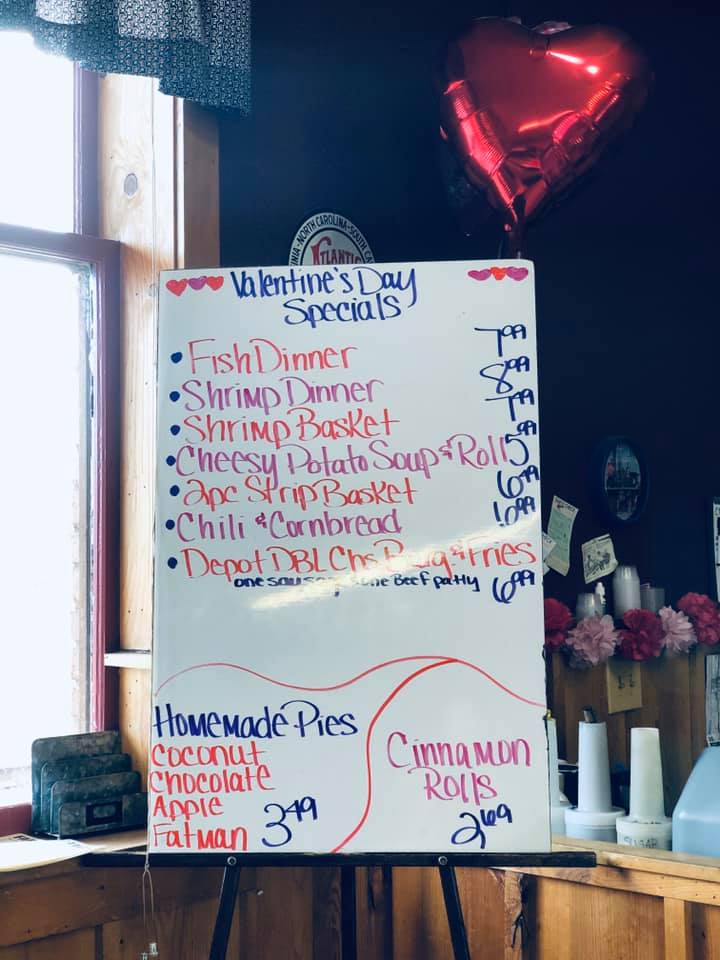 NIA-NORTH CAROLINA-SOUTH CA
ATLANTIC
Valentine's Day
Specials
• Fish Dinner 7.99
• Shrimp Dinner 8.99
• Shrimp Basket 7.99
• Cheesy Potato Soup & Roll 5.99
• 2pc Strip Basket 6.99
• Chili & Cornbread 6.99
• Depot DBL Chs & Fries
one Beef patty 6.99
Homemade Pies
Coconut
Chocolate
Apple
Fatman 3.49
Cinnamon
Rolls
2.69
SUGAR